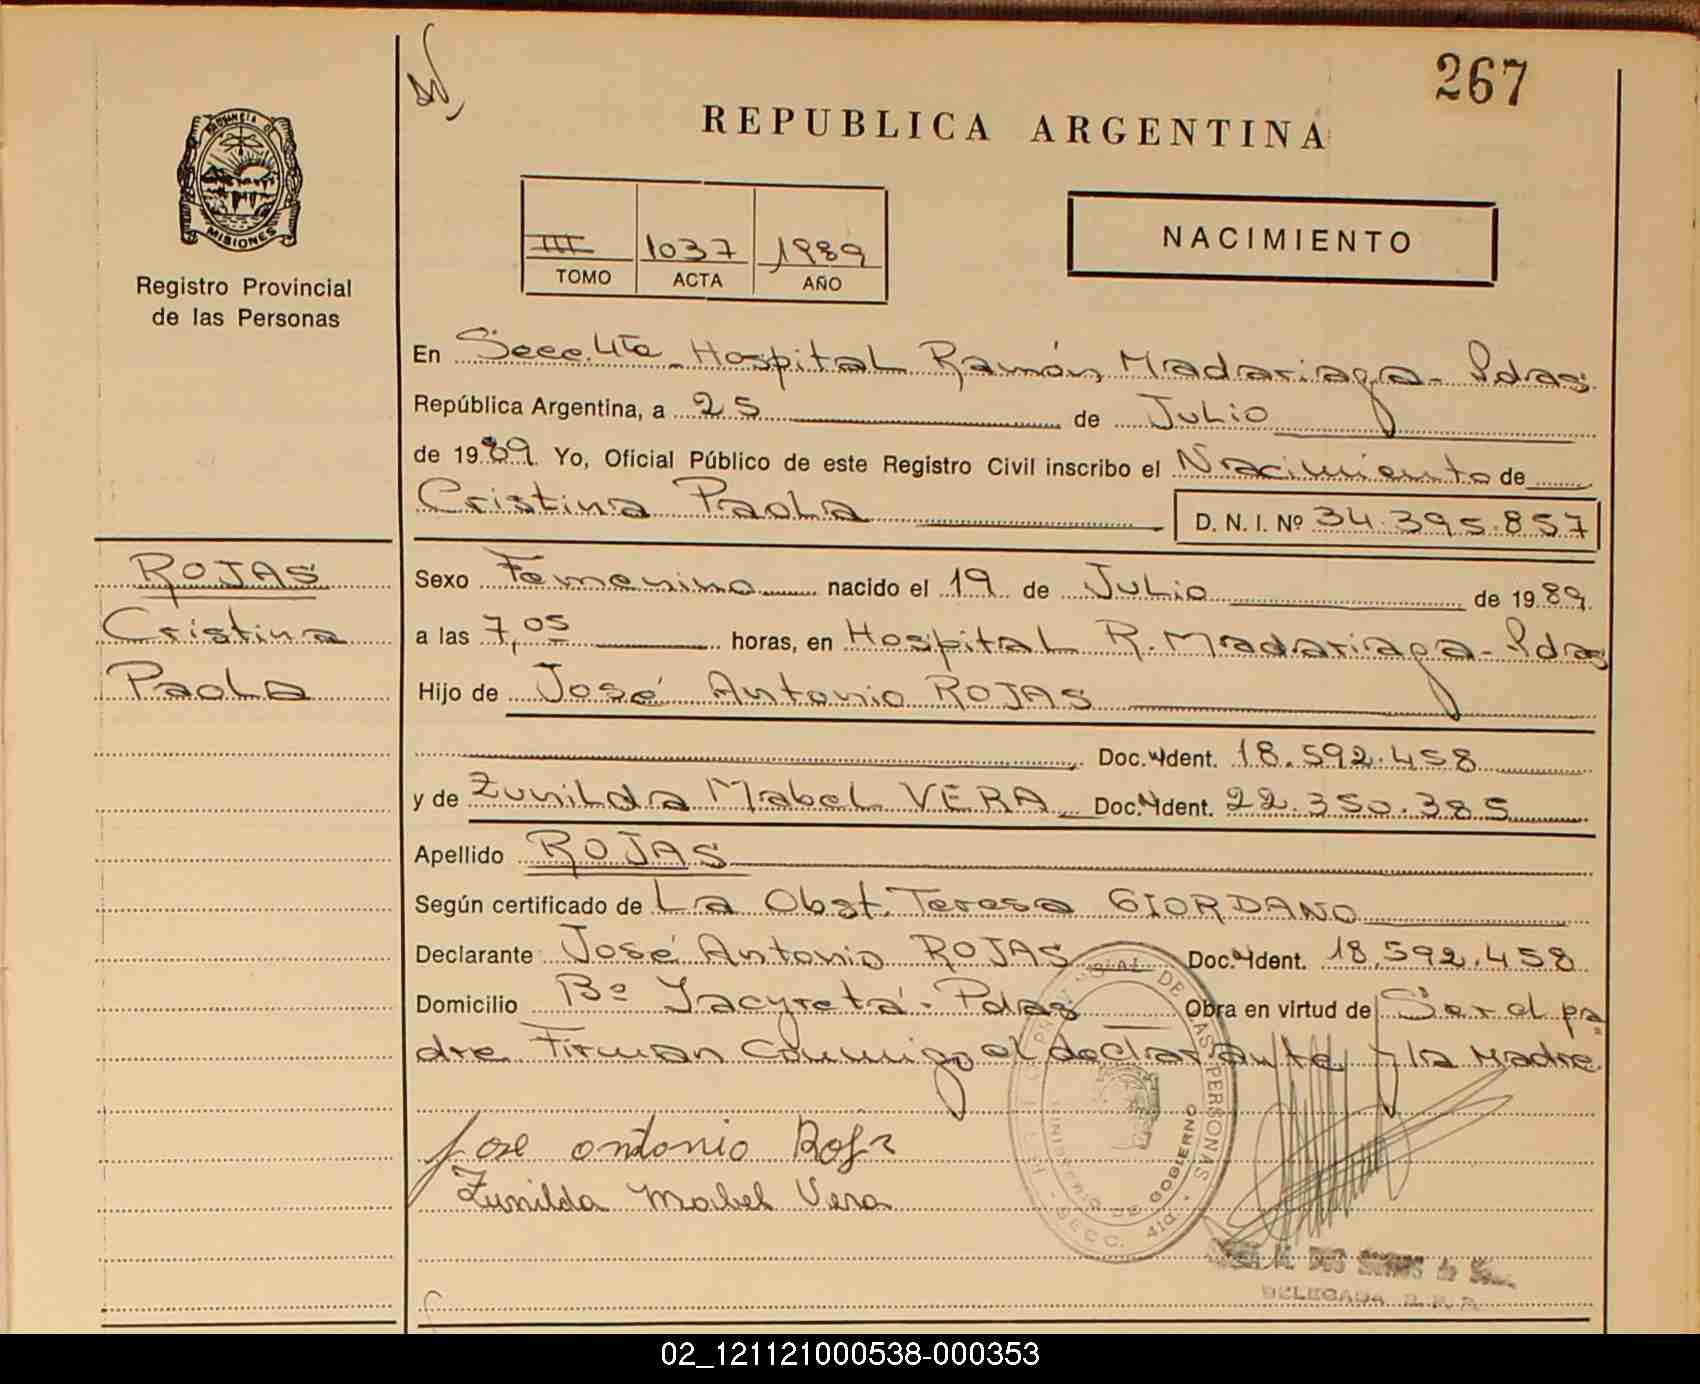 267
REPUBLICA ARGENTINA
PROVINCIA DE
MISIONES
Registro Provincial
de las Personas
III 1037 1989
TOMO ACTA AÑO
NACIMIENTO
En Secc. 4ta - Hospital Ramón Madariaga - Pdas
República Argentina, a 25 de Julio
de 1989. Yo, Oficial Público de este Registro Civil inscribo el Nacimiento de
Cristina Paola D. N. I. Nº 34.395.857
ROJAS
Cristina
Paola
Sexo Femenino nacido el 19 de Julio de 1989
a las 7,05 horas, en Hospital R. Madariaga - Pdas
Hijo de José Antonio ROJAS
Doc. Ident. 18.592.458
y de Zunilda Mabel VERA Doc. Ident. 22.350.385
Apellido ROJAS
Según certificado de La Obst. Teresa GIORDANO
Declarante José Antonio ROJAS Doc. Ident. 18.592.458
Domicilio Bº Yacyretá - Pdas Obra en virtud de Ser el pa
dre Firman Conmigo el declarante y la Madre
Jose antonio Rojas
Zunilda Mabel Vera
DE LAS PERSONAS
MINISTERIO DE GOBIERNO
SECC. 4ta.
DELEGADA
02_121121000538-000353